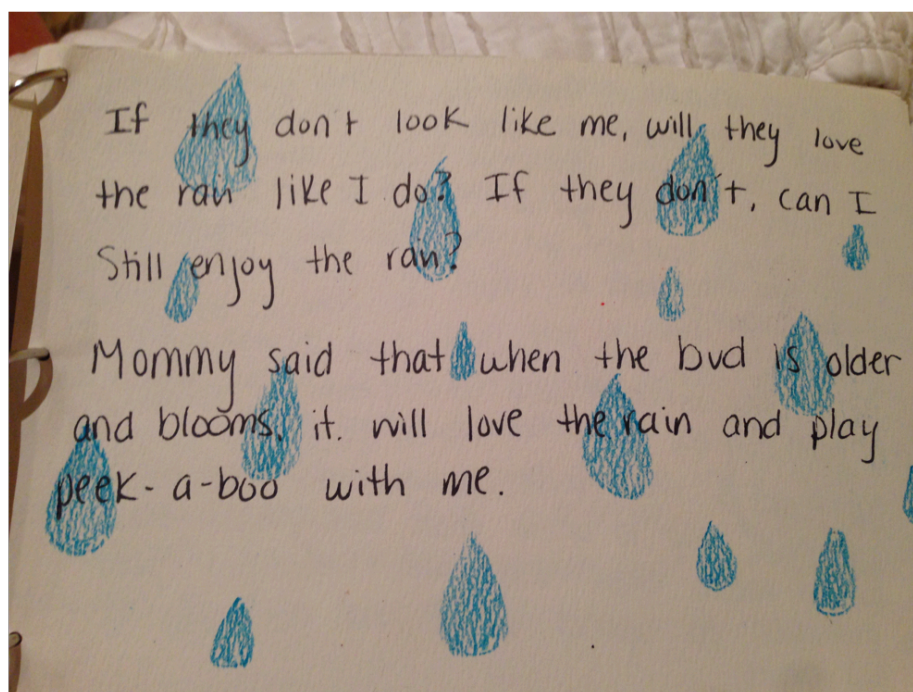 If they don't look like me, will they love
the ran like I do? If they don't, can I
Still enjoy the ran?
Mommy said that when the bud is older
and blooms, it. will love the rain and play
peek-a-boo with me.